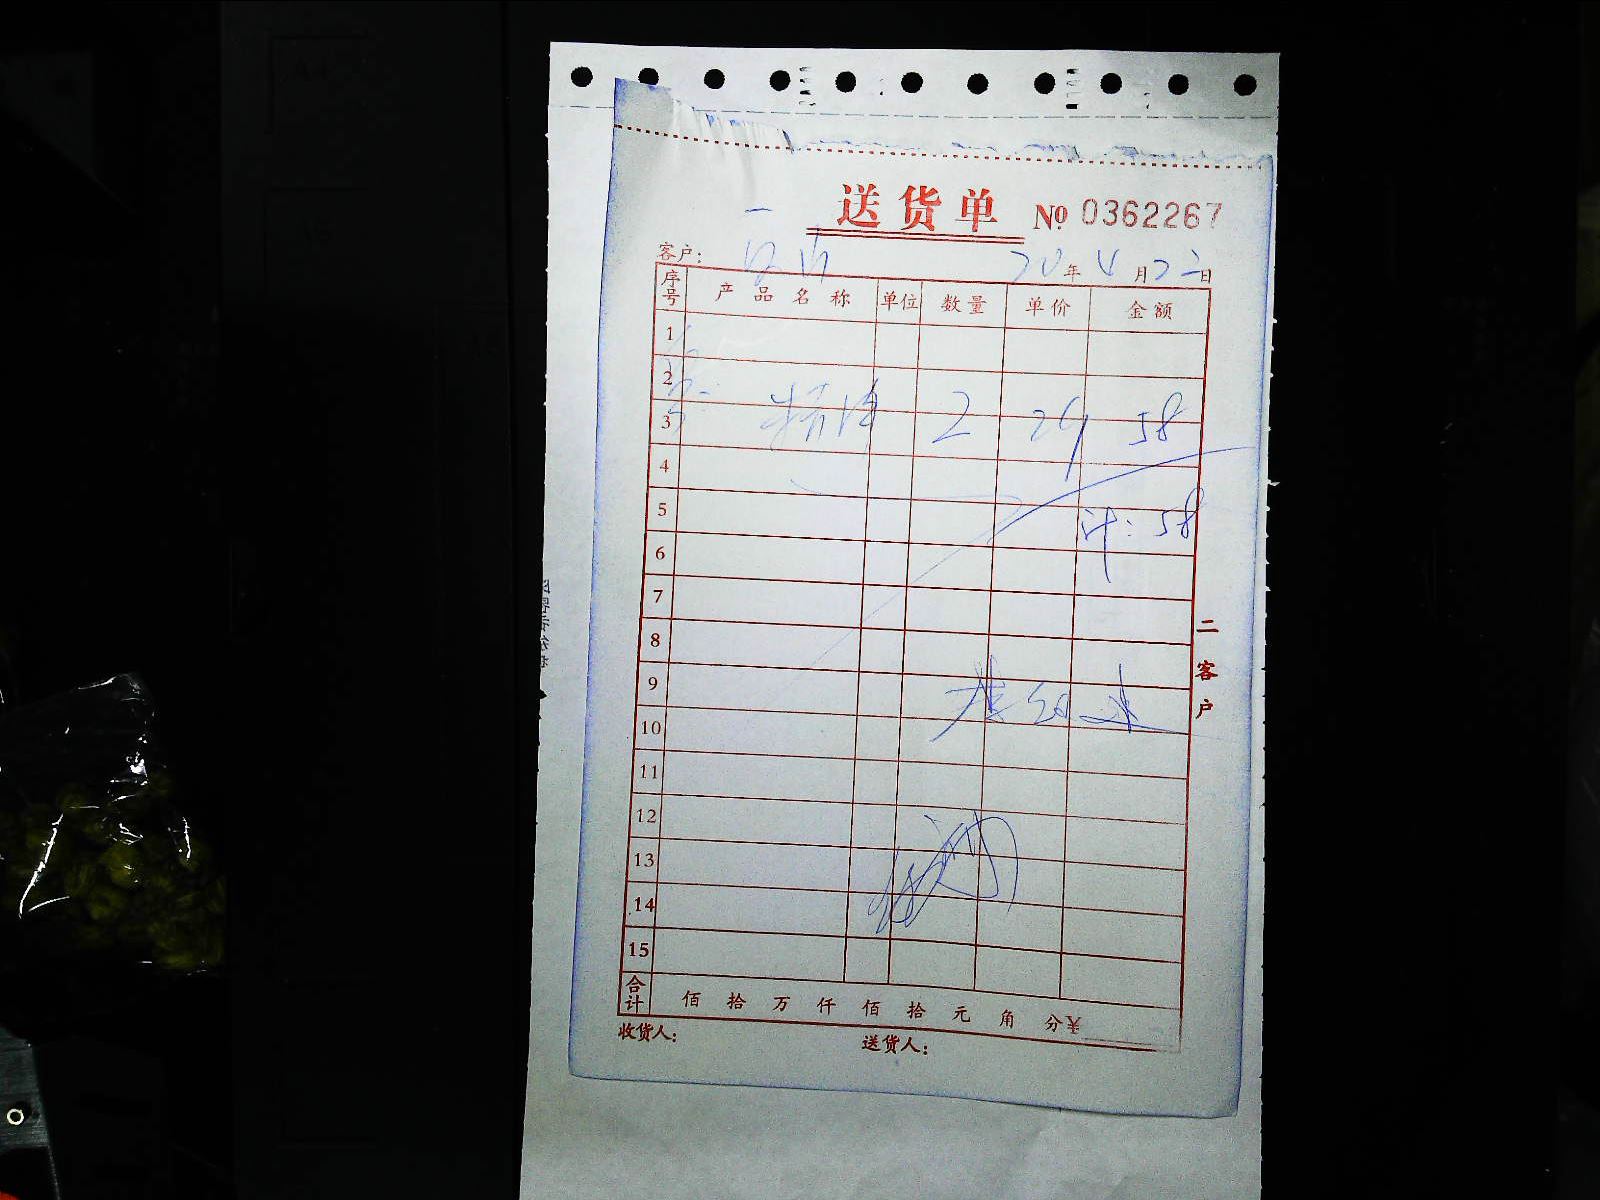 送货单 № 0362267
客户： 20年4月22日
序号 产品名称 单位 数量 单价 金额
1
2
3 2 29 58
4
5 计：58
6
7
8
9
10
11
12
13
14
15
合计 佰 拾 万 仟 佰 拾 元 角 分¥
收货人： 送货人：
二客户